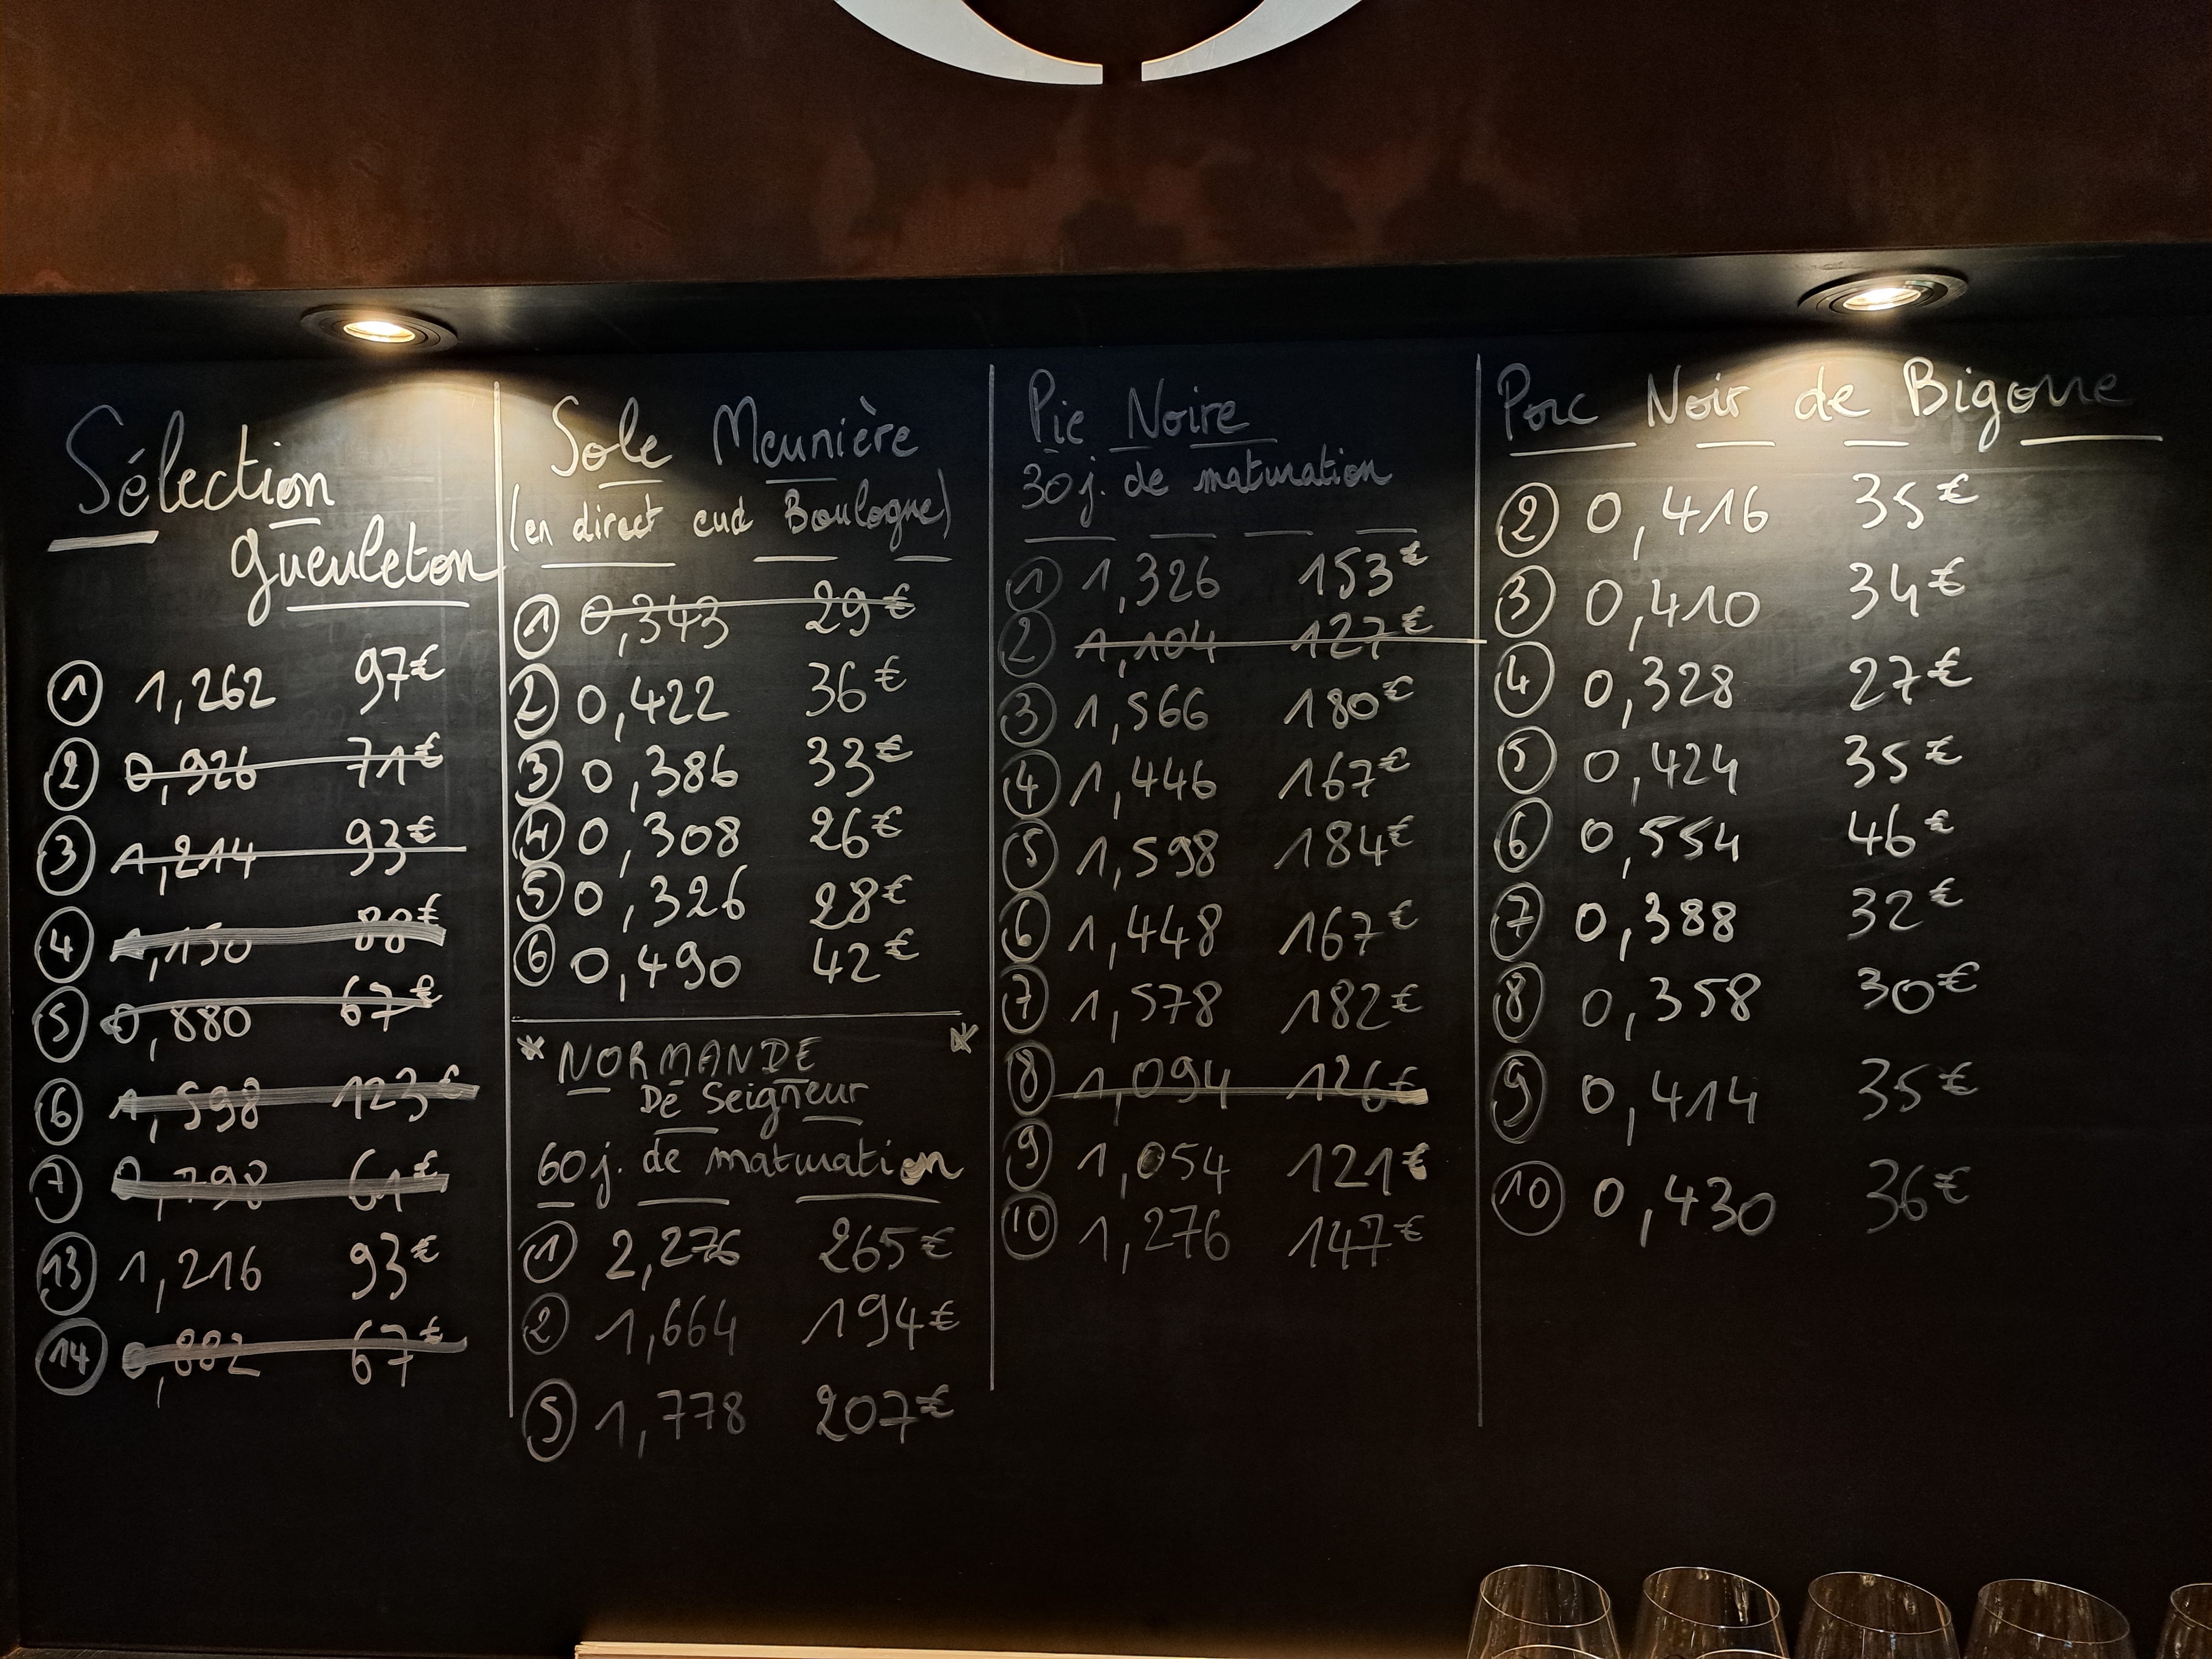 Sélection
gueuleton
① 1,262 97€
② 0,926 71€
③ 1,214 93€
④ 1,150 88€
⑤ 0,880 67€
⑥ 1,598 123€
⑦ 0,798 61€
⑬ 1,216 93€
⑭ 0,882 67€
Sole Meunière
(en direct cud Boulogne)
① 0,343 29€
② 0,422 36€
③ 0,386 33€
④ 0,308 26€
⑤ 0,326 28€
⑥ 0,490 42€
* NORMANDE *
De Seigneur
60j. de maturation
① 2,276 265€
② 1,664 194€
⑤ 1,778 207€
Pie Noire
30j. de maturation
① 1,326 153€
② 1,104 127€
③ 1,566 180€
④ 1,446 167€
⑤ 1,598 184€
⑥ 1,448 167€
⑦ 1,578 182€
⑧ 1,094 126€
⑨ 1,054 121€
⑩ 1,276 147€
Porc Noir de Bigorre
② 0,416 35€
③ 0,410 34€
④ 0,328 27€
⑤ 0,424 35€
⑥ 0,554 46€
⑦ 0,388 32€
⑧ 0,358 30€
⑨ 0,414 35€
⑩ 0,430 36€